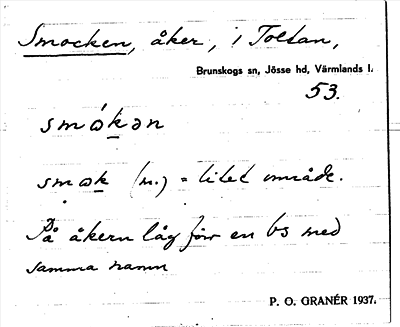 Smocken, åker, i Toltan,
Brunskogs sn, Jösse hd, Värmlands l.
53.
smɷ́kən
smɷk (n.) = litet område.
På åkern låg förr en bs med
samma namn
P. O. GRANÉR 1937.